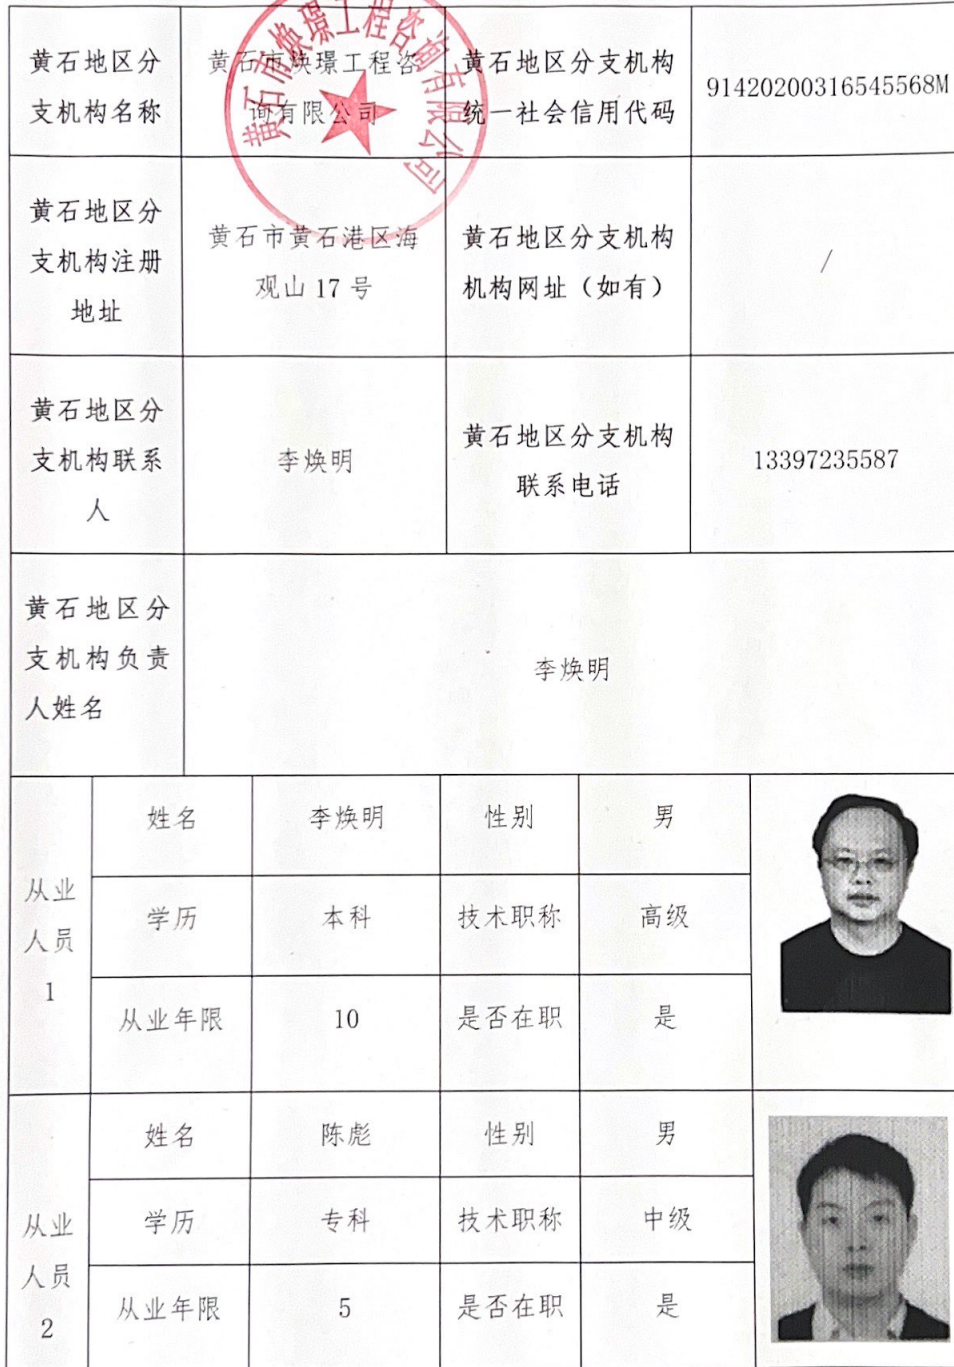 黄石市焕璟工程咨询有限公司
黄石地区分
支机构名称
黄石市焕璟工程咨
询有限公司
黄石地区分支机构
统一社会信用代码
91420200316545568M
黄石地区分
支机构注册
地址
黄石市黄石港区海
观山 17 号
黄石地区分支机构
机构网址（如有）
/
黄石地区分
支机构联系
人
李焕明
黄石地区分支机构
联系电话
13397235587
黄石地区分
支机构负责
人姓名
李焕明
从业
人员
1
姓名
李焕明
性别
男
学历
本科
技术职称
高级
从业年限
10
是否在职
是
从业
人员
2
姓名
陈彪
性别
男
学历
专科
技术职称
中级
从业年限
5
是否在职
是